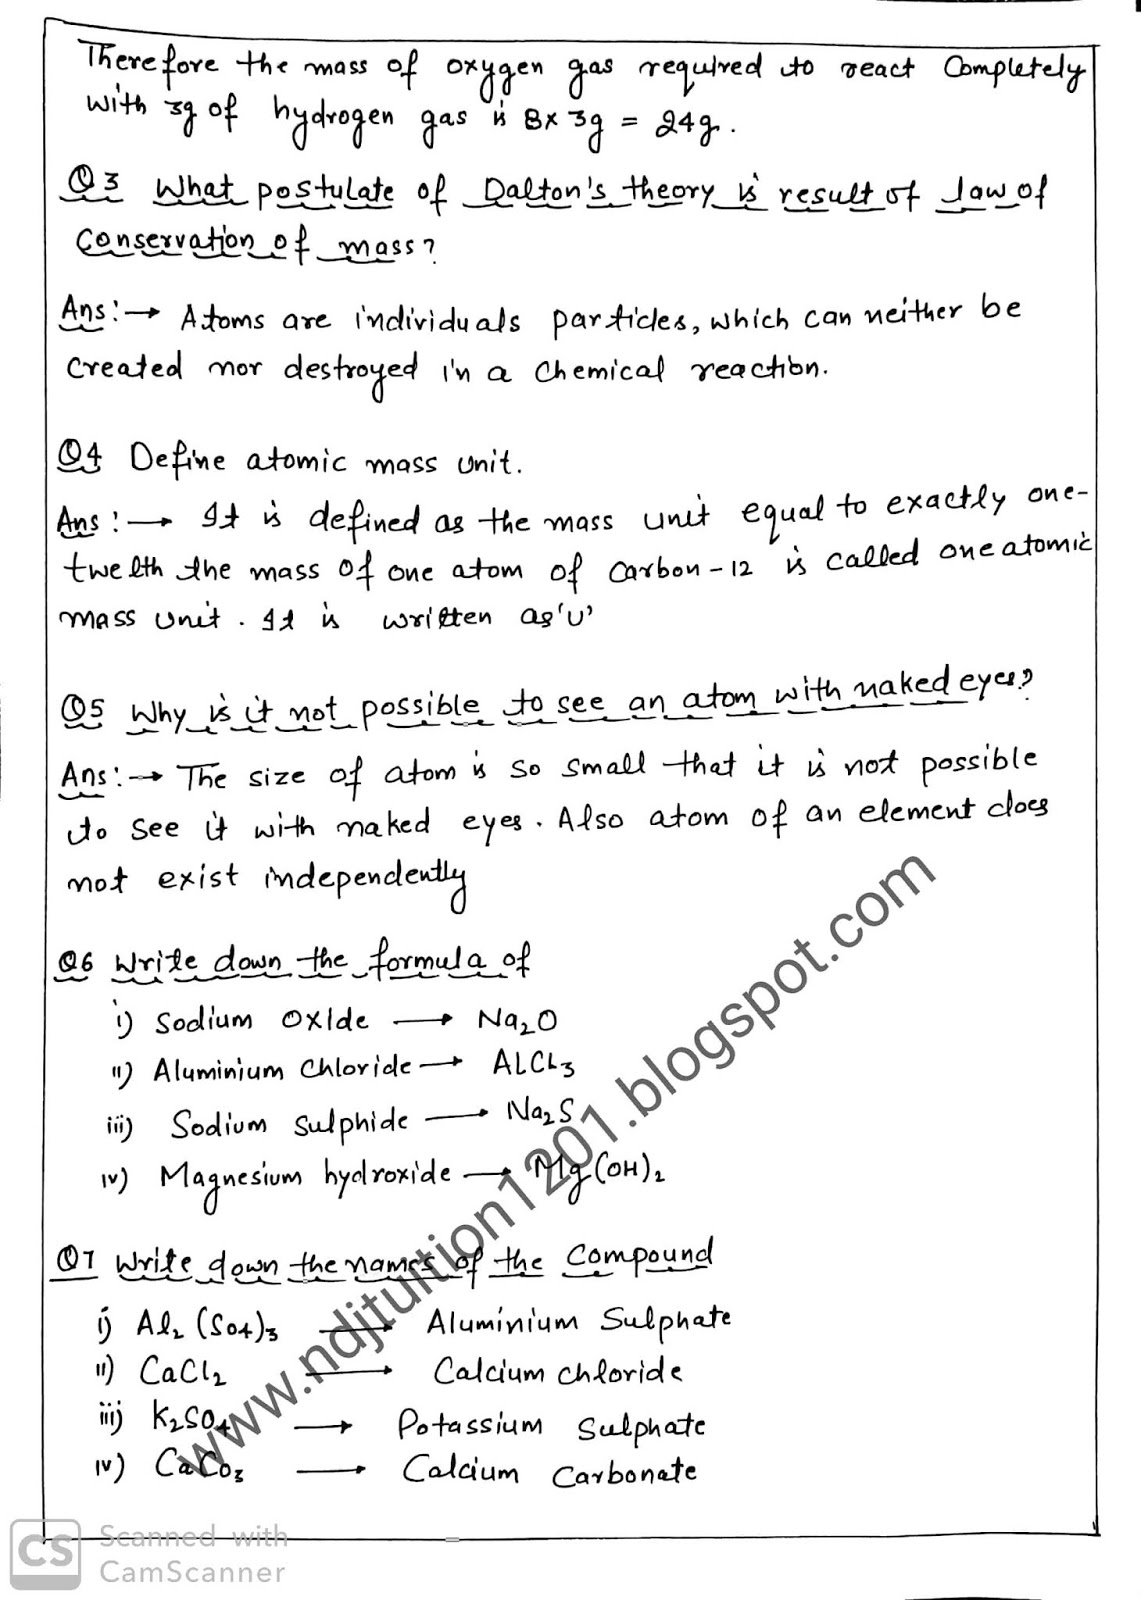 Therefore the mass of oxygen gas required to react Completely
with 3g of hydrogen gas is 8x 3g = 24g.
Q3 What postulate of Dalton's theory is result of law of
Conservation of mass?
Ans:→ Atoms are individuals particles, which can neither be
Created nor destroyed in a Chemical reaction.
Q4 Define atomic mass unit.
Ans:→ It is defined as the mass unit equal to exactly one-
twelth the mass of one atom of Carbon-12 is called one atomic
mass unit. It is written as 'u'
Q5 Why is it not possible to see an atom with naked eyes?
Ans:→ The size of atom is so small that it is not possible
to see it with naked eyes. Also atom of an element does
not exist independently
Q6 Write down the formula of
i) Sodium Oxide → Na₂O
ii) Aluminium Chloride → AlCl₃
iii) Sodium Sulphide → Na₂S
iv) Magnesium hydroxide → Mg(OH)₂
Q7 Write down the names of the Compound
i) Al₂(SO4)₃ → Aluminium Sulphate
ii) CaCl₂ → Calcium chloride
iii) K₂SO₄ → Potassium Sulphate
iv) CaCO₃ → Calcium Carbonate
www.ndjtuition1201.blogspot.com
CS Scanned with
CamScanner